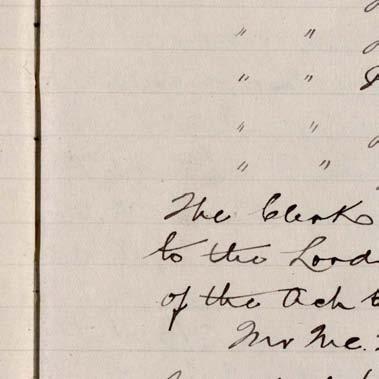 " "
" "
" "
" "
The Clerk
to the Lord
of the Ack
Mr Mc.